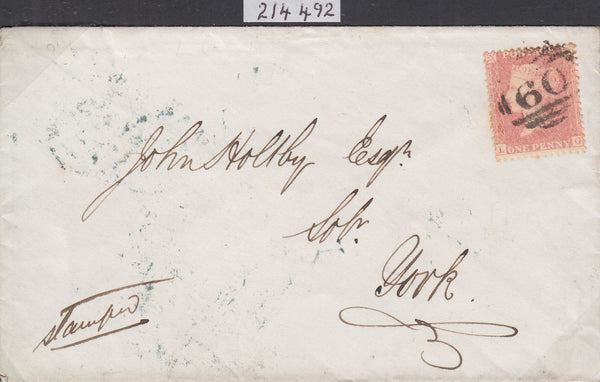 214 492
160
L G
ONE PENNY
John Holtby Esqr
Solr
York.
stamped